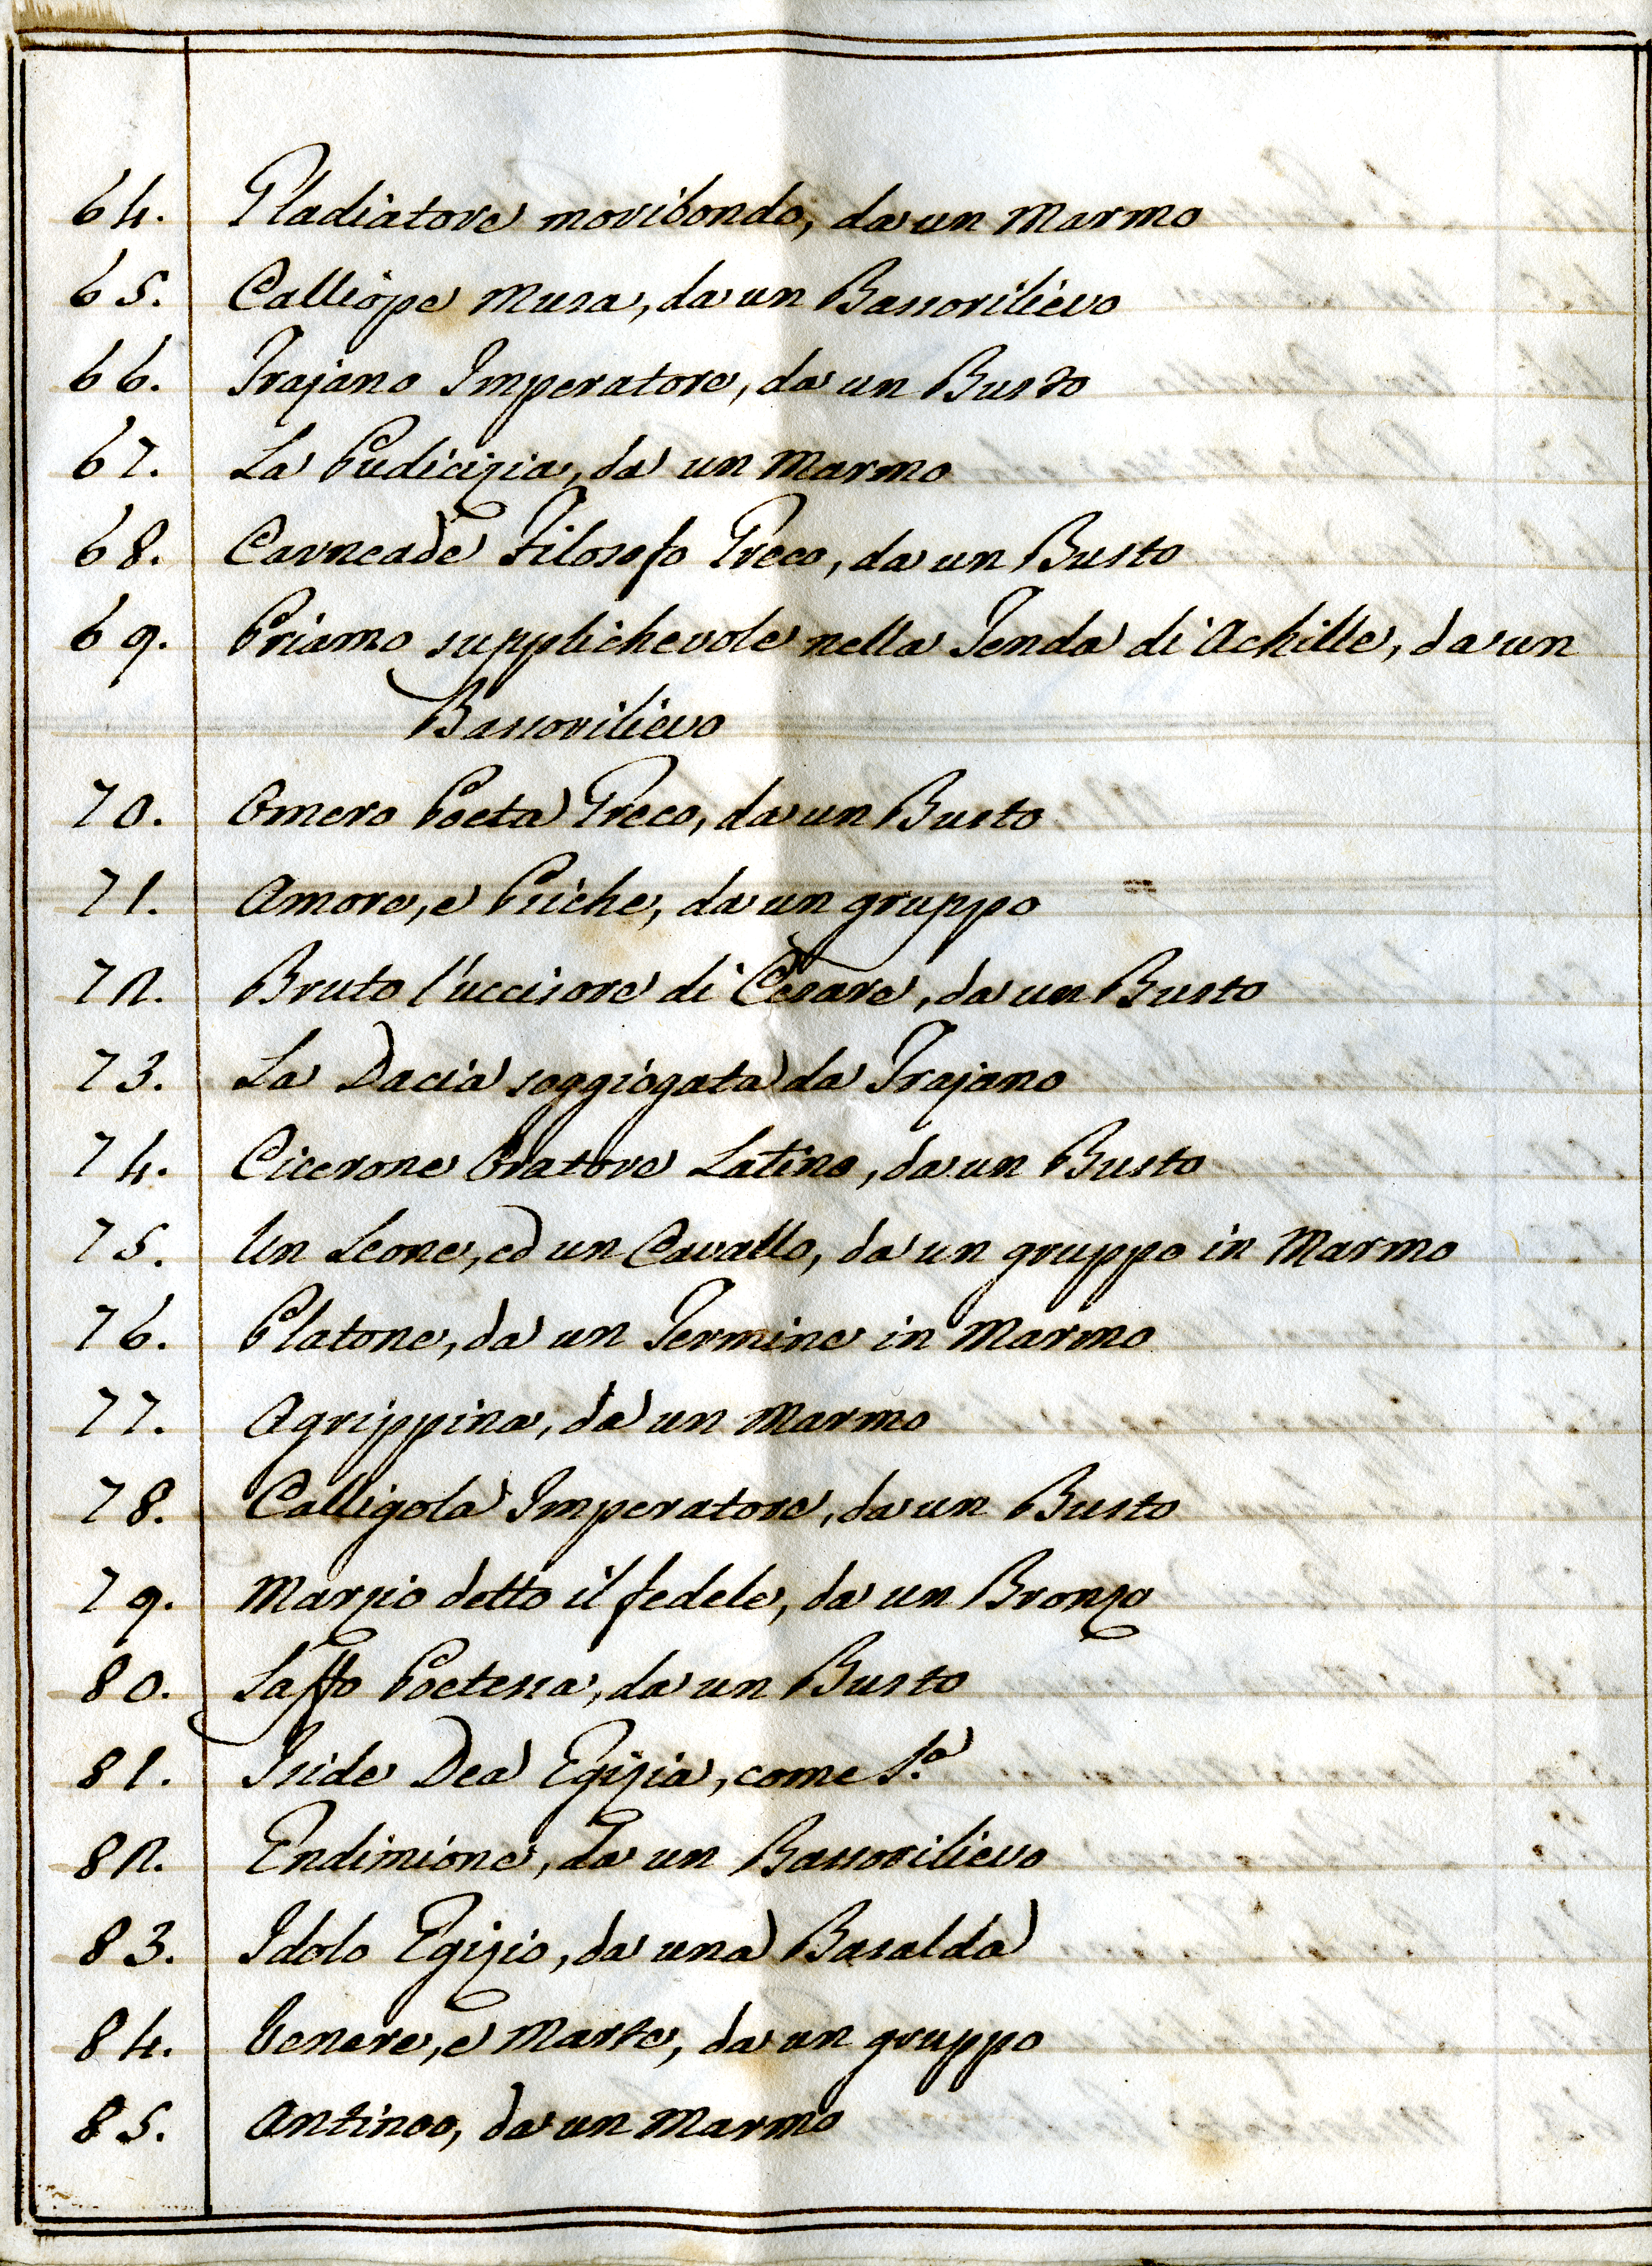 64. Gladiatore moribondo, da un Marmo
65. Calliope Musa, da un Bassorilievo
66. Trajano Imperatore, da un Busto
67. La Pudicizia, da un Marmo
68. Carneade Filosofo Greco, da un Busto
69. Priamo supplichevole nella Tenda di Achille, da un
Bassorilievo
70. Omero Poeta Greco, da un Busto
71. Amore, e Psiche, da un gruppo
72. Bruto l'uccisore di Cesare, da un Busto
73. La Dacia soggiogata da Trajano
74. Cicerone Oratore Latino, da un Busto
75. Un Leone, ed un Cavallo, da un gruppo in Marmo
76. Platone, da un Termine in Marmo
77. Agrippina, da un Marmo
78. Calligola Imperatore, da un Busto
79. Marzio detto il fedele, da un Bronzo
80. Saffo Poetessa, da un Busto
81. Iside Dea Egizia, come S.a
82. Endimione, da un Bassorilievo
83. Idolo Egizio, da una Basalda
84. Venere, e Marte, da un gruppo
85. Antinoo, da un Marmo